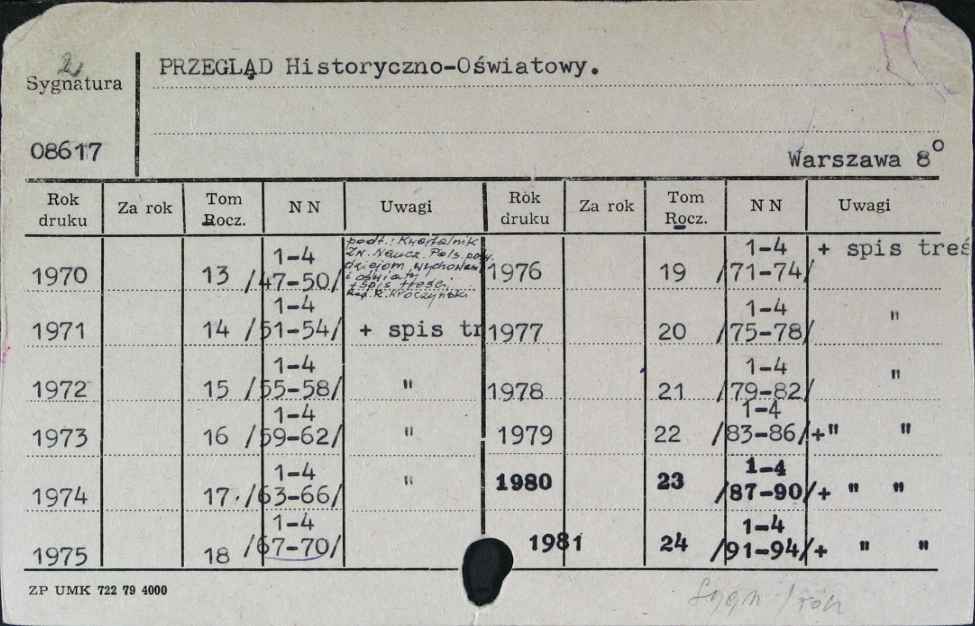 2
Sygnatura
PRZEGLĄD Historyczno-Oświatowy.
08617
Warszawa 8°
Rok druku Za rok Tom Rocz. NN Uwagi Rok druku Za rok Tom Rocz. NN Uwagi
podt.: Kwartalnik
Zw. Naucz. Pols. pośw.
dziejom wychowania
i oświaty
+ spis treści
Red. R. Wroczyński
1970 13 1-4 /47-50/
1971 14 1-4 /51-54/ + spis tr
1972 15 1-4 /55-58/ "
1973 16 1-4 /59-62/ "
1974 17. 1-4 /63-66/ "
1975 18 1-4 /67-70/
1976 19 1-4 /71-74/ + spis treś
1977 20 1-4 /75-78/ "
1978 21 1-4 /79-82/ "
1979 22 1-4 /83-86/ +" "
1980 23 1-4 /87-90/ + " "
1981 24 1-4 /91-94/ + " "
ZP UMK 722 79 4000
Sygn. / rok